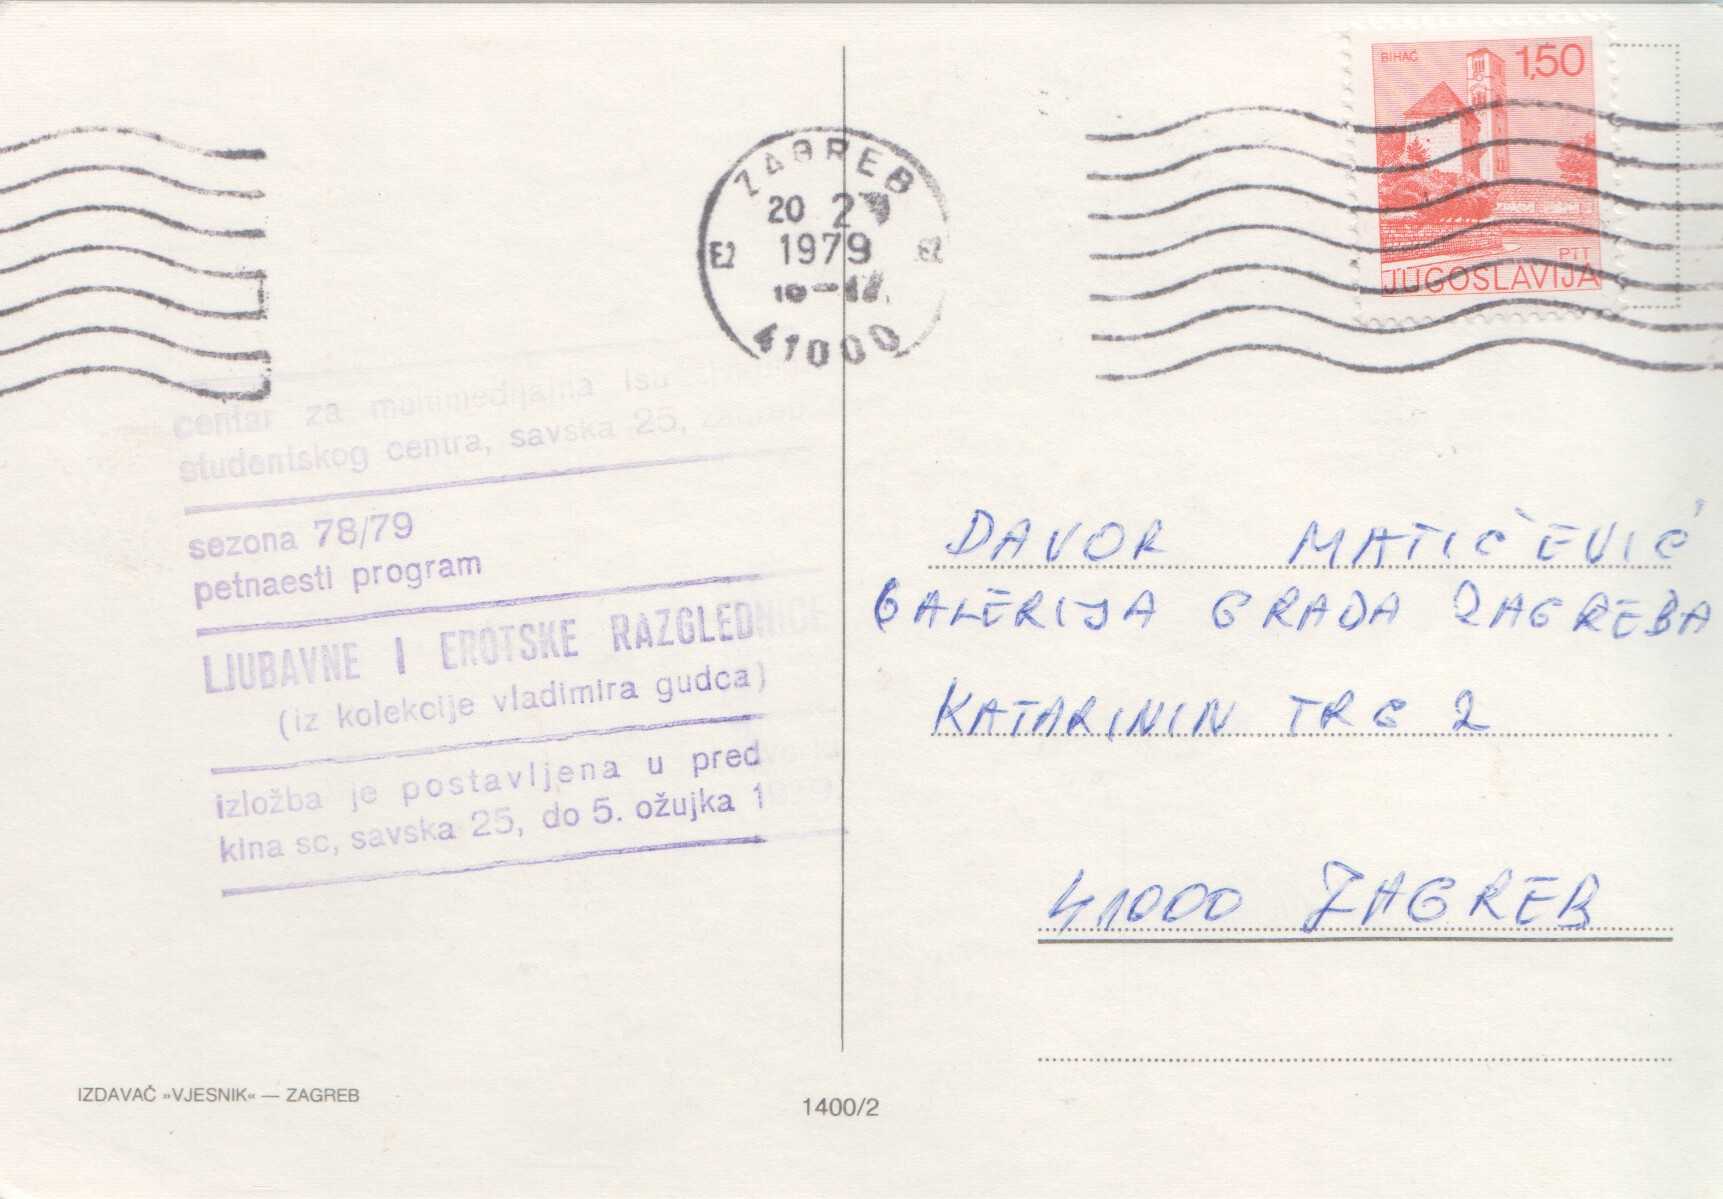 BIHAĆ
1,50
PTT
JUGOSLAVIJA
ZAGREB
20 2
1979
41000
centar za multimedijalna
studentskog centra, savska 25, zagreb
sezona 78/79
petnaesti program
LJUBAVNE I EROTSKE RAZGLEDNICE
(iz kolekcije vladimira gudca)
izložba je postavljena u pred
kina sc, savska 25, do 5. ožujka 1
DAVOR MATIČEVIĆ
GALERIJA GRADA ZAGREBA
KATARININ TRG 2
41000 ZAGREB
IZDAVAČ »VJESNIK« — ZAGREB
1400/2